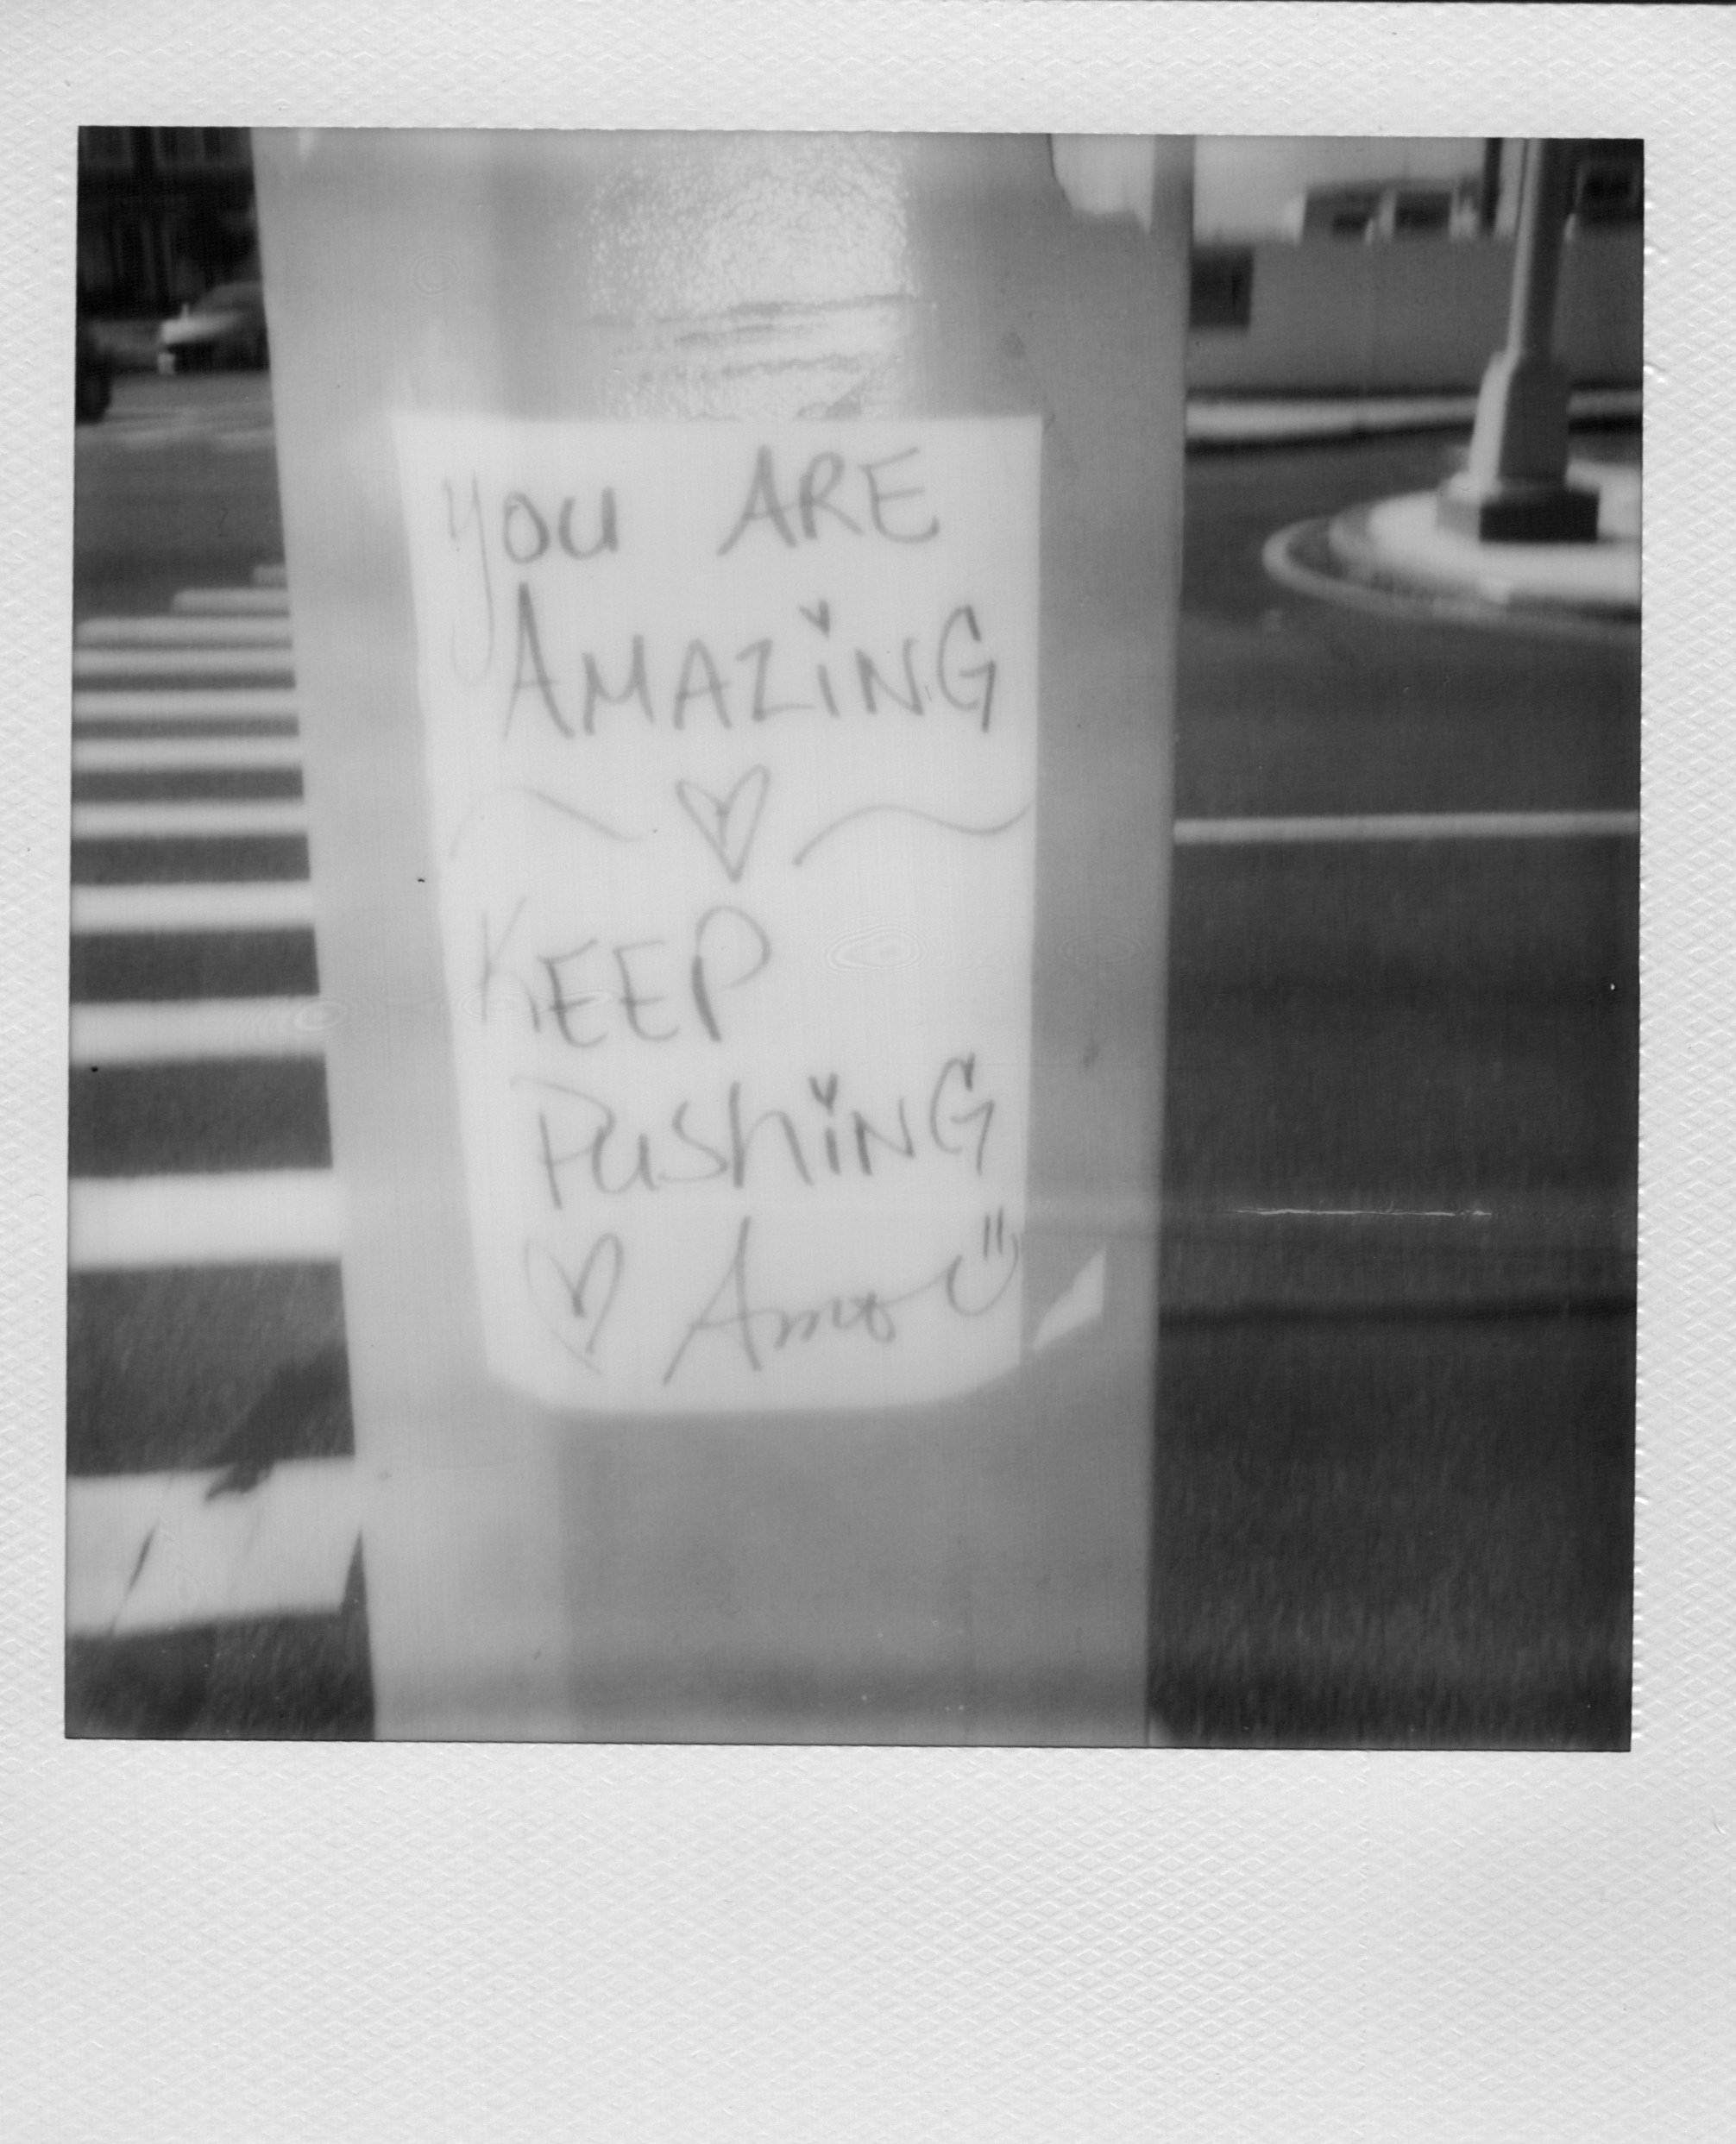 you ARE
AMAZiNG
KEEP
PushiNG